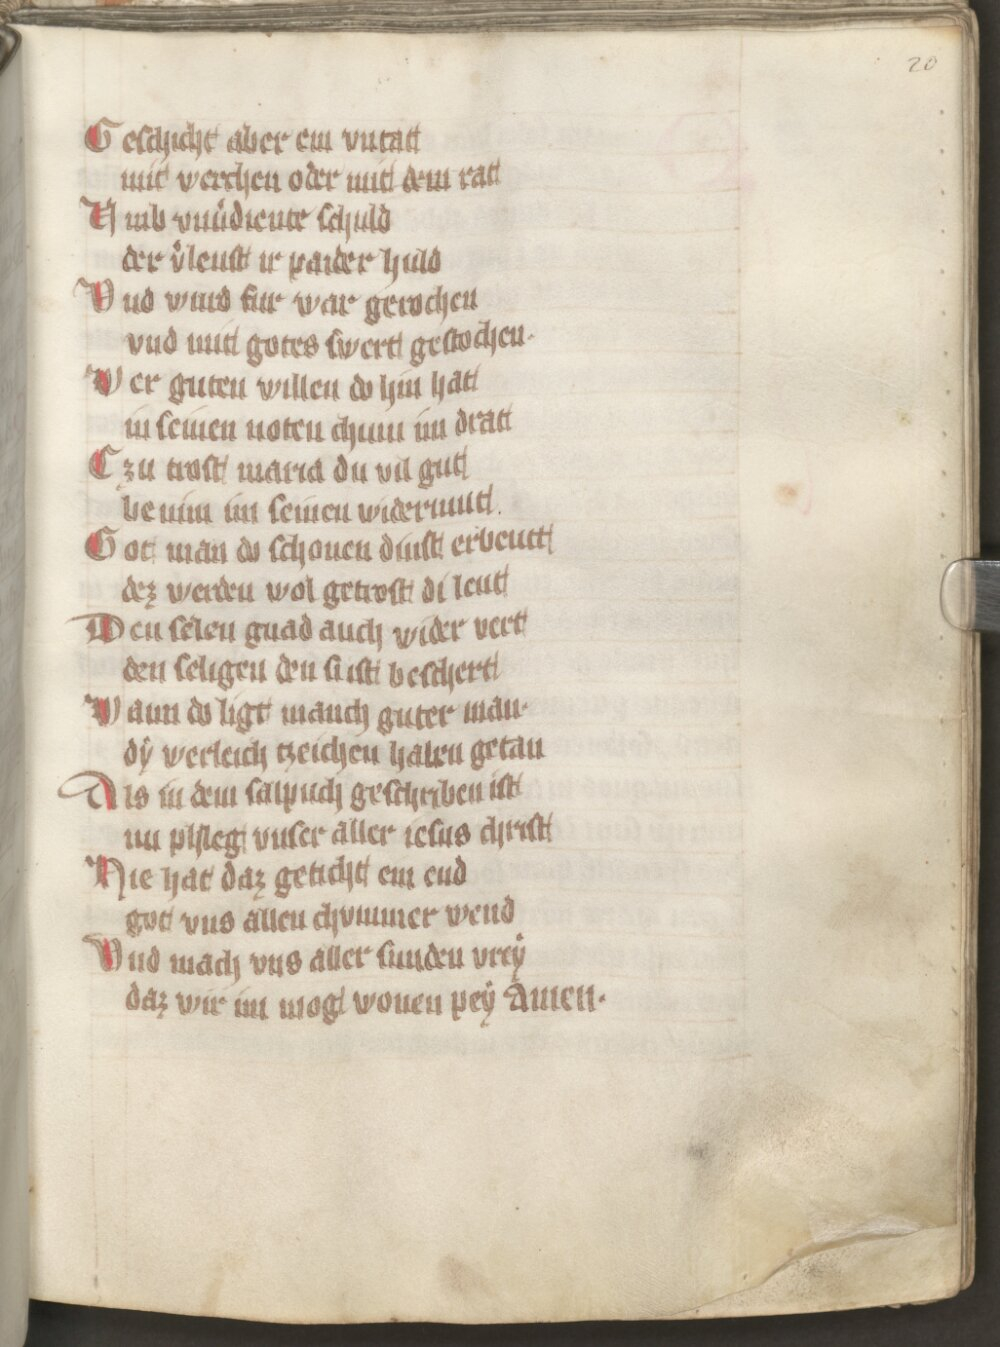 20
Geschicht aber ein vntatt
mit werchen oder mit dem ratt
Vmb vnu͛diente schuld
der v͛leust ir paider huld
Vnd wird fur war gerochen
vnd mit gotes swert gestochen·
Wer guten willen do hin hatt
in seinen noten chum im dratt
Czu trost maria du vil gut
benim im seinen widermut.
Got man do schonen dinst erbeutt
dez werden wol getrost di leut
Den selen gnad auch wider vert
den seligen den si ist beschert
Wann do ligt manch guter man·
dÿ werleich tzeichen haben getan
Als in dem salpuch geschriben ist
nu phleg vnser aller iesus christ
Hie hat daz geticht ein end
got vns allen chummer wend
Vnd mach vns aller sunden vreÿ
daz wir im mog wonen peÿ Amen·